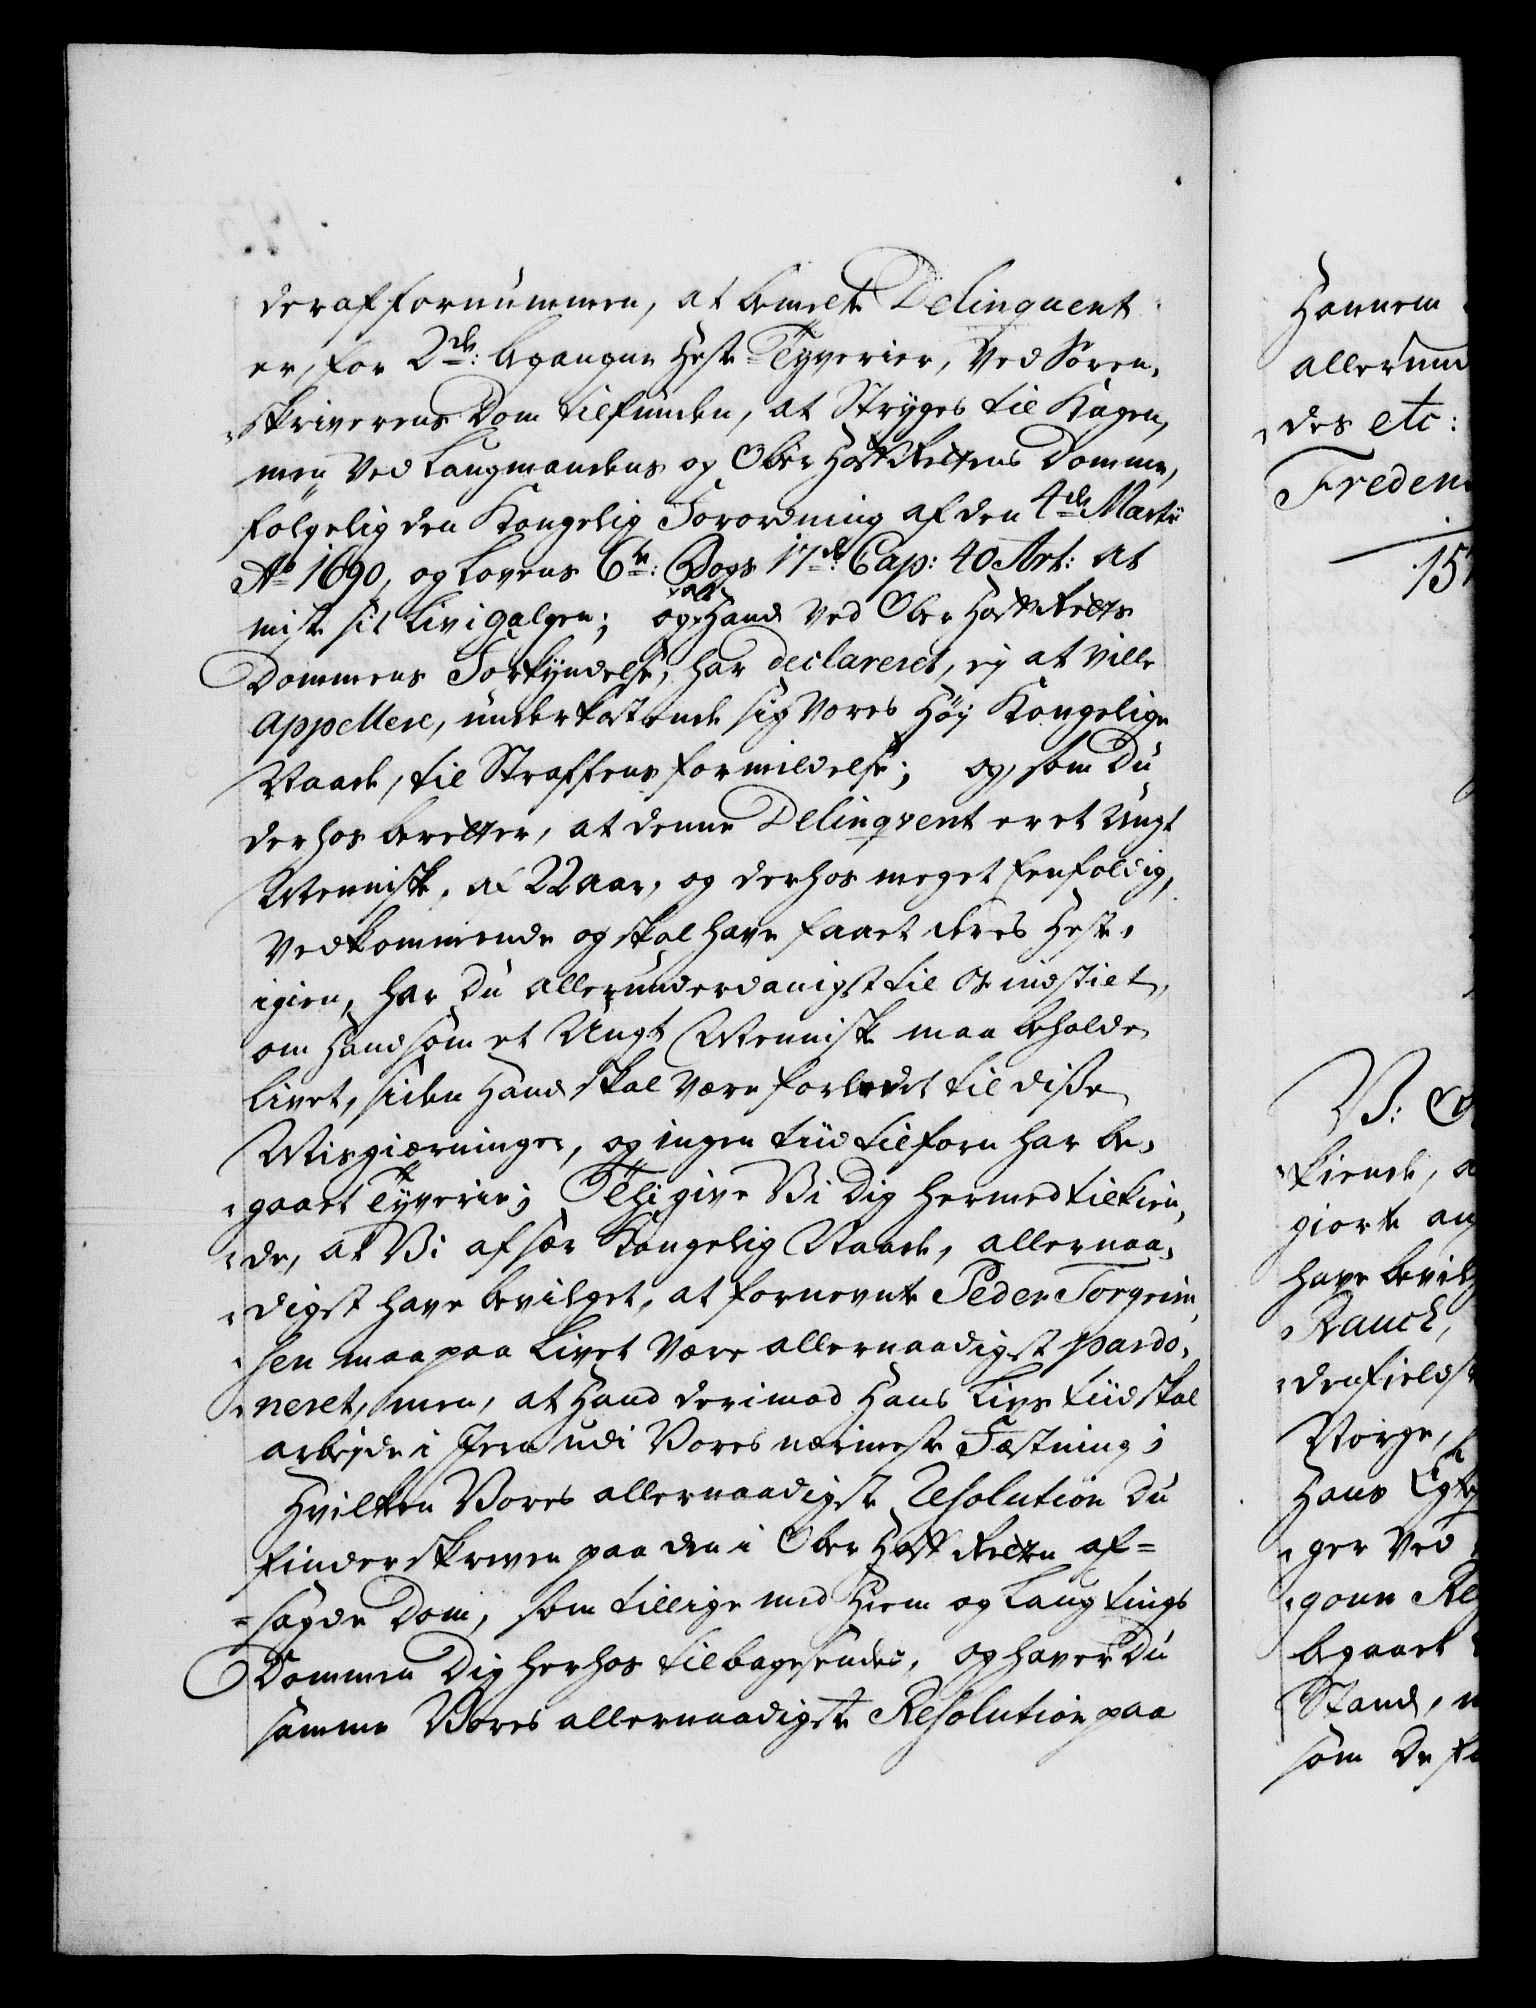 deraf fornummen, at bemelte Delinquent
er, for 2de: begangne Heste-Tyverier, ved Soren-
skriverens Dom tilfunden, at Stryges til Kagen,
men ved Laugmandens og Ober Hoff Rettens Domme,
følgelig den Kongelig Forordning af den 4de Martii
Ao 1690, og Lovens 6te: Bogs 17de: Cap: 40 Art: at
miste sit Liv i Galgen; og Hand ved Ober Hoff Retts
Dommens Forkyndelse, har declareret, ej at ville
appellere, underkastende sig Vores Høy Kongelige
Naade, til Straffens formildelse; og, som Du
derhos beretter, at denne Delinqvent er et Ungt
Menniske, af 22 Aar, og derhos meget Eenfoldig,
Vedkommende og skal have faaet deres Heste
igien, har Du allerunderdanigst til Os indstilet,
om Hand som et Ungt Menniske maa beholde
Livet, siden Hand skal være forledet til diße
Misgierninger, og ingen tiid tilforn har be-
gaaet Tyverie; Thi give Vi Dig hermed tilkien-
de, at Vi af sær Kongelig Naade, allernaa-
digst have bevilget, at fornevnte Peder Torgrim-
sen maa paa Livet være allernaadigst pardo-
neret, men, at Hand derimod Hans Livs tiid skal
arbejde i Jern udi Vores nærmeste Fæstning;
Hvilken Vores allernaadigste Resolution Du
finder skreven paa den i Ober Hoff Retten af-
sagde Dom, som tillige med Hiem og Laugtings
Dommen Dig herhos tilbagesendes, og haver Du
samme Vores allernaadigste Resolution paa
Hannem
allerund
des etc:
Freden
15
V: G
kiende, a
giorte an
have bevilg
Rauch,
denfields
Norge,
Hans
ger ved
gonn Re
begaaet
Stand,
som De